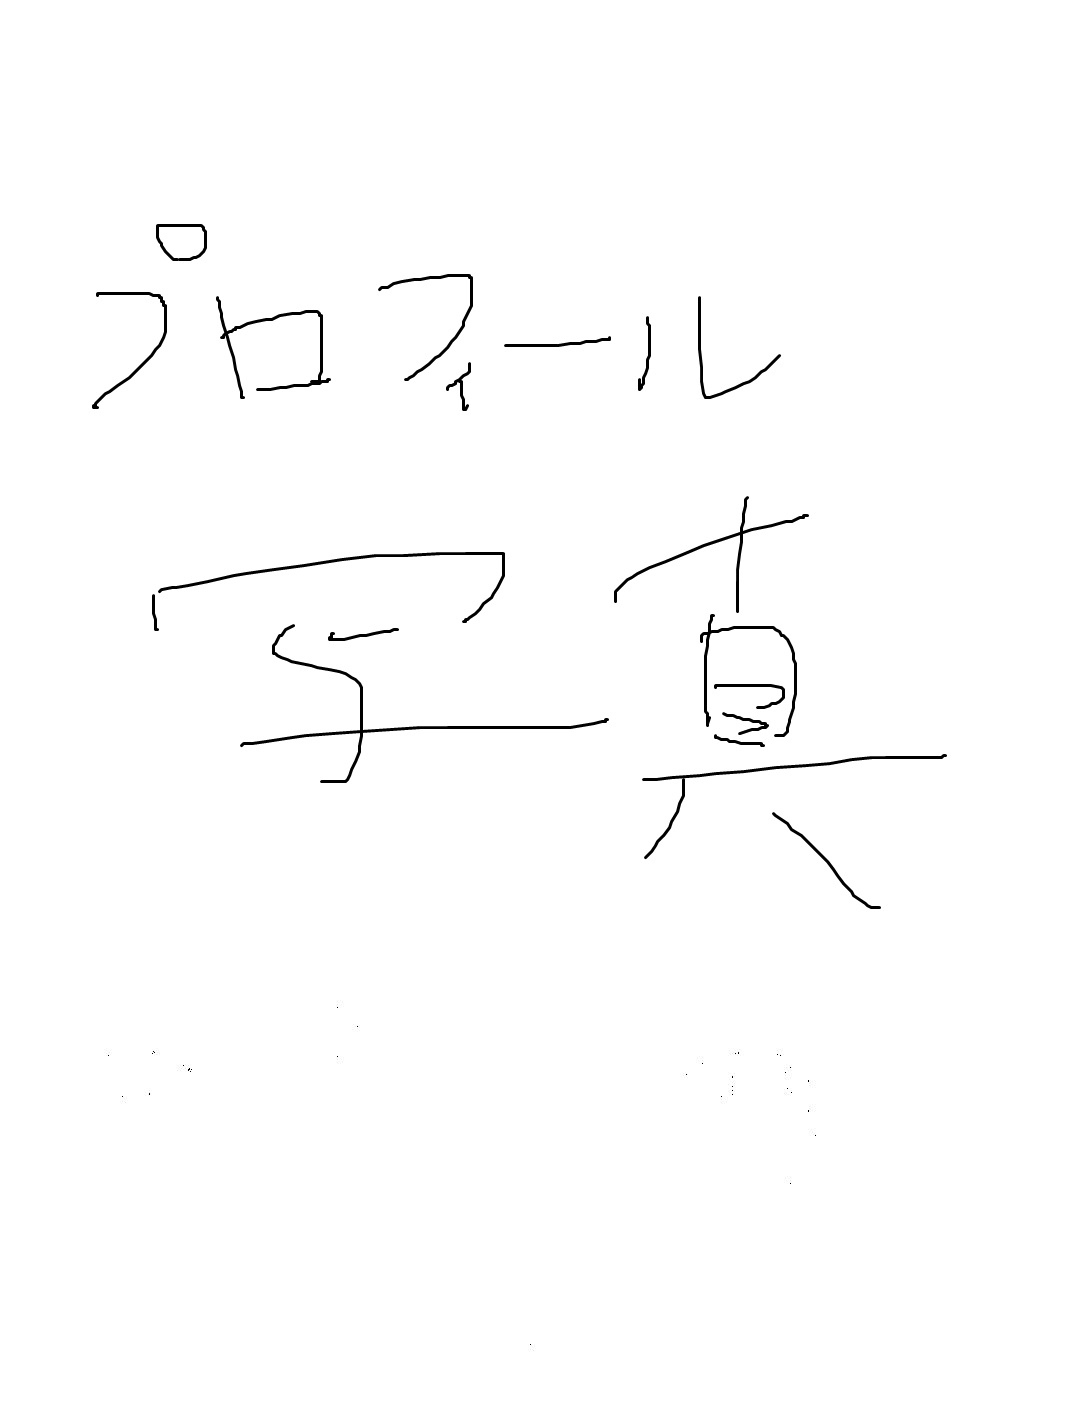 プロフィール
写真